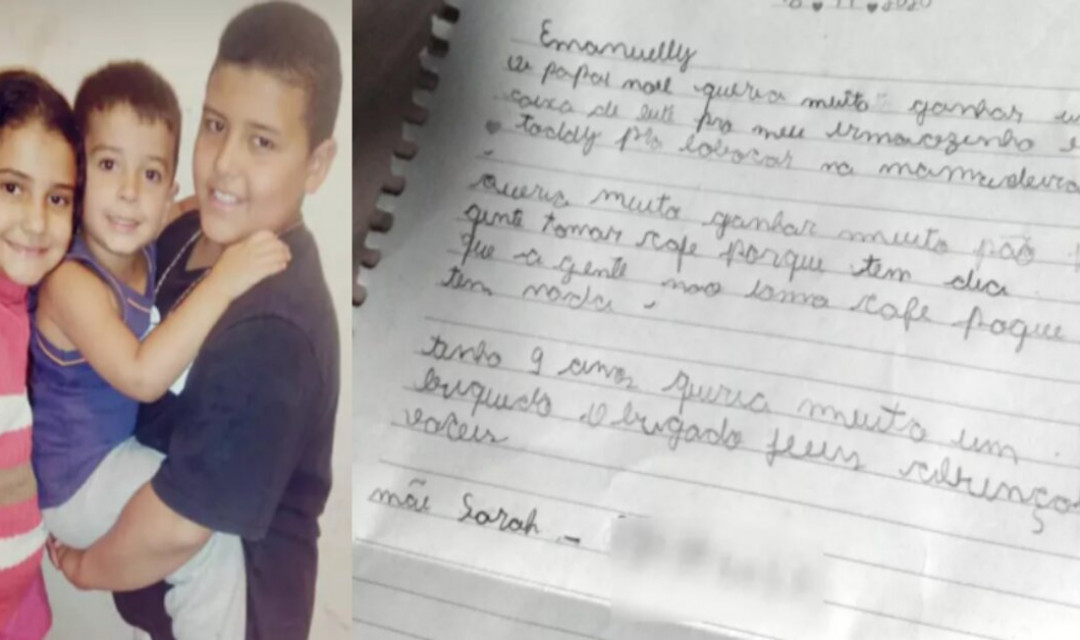 11 2020
Emanuelly
papai noel queria muito ganhar
caixa de leite pro meu irmaozinho e
toddy pra colocar na mamadeira
queria muito ganhar muito pão
gente tomar cafe porque tem dia
que a gente nao toma cafe poque
tem nada
tenho 9 anos queria muito um
briquedo obrigado jeus abençoa
voceis
mãe Sarah -